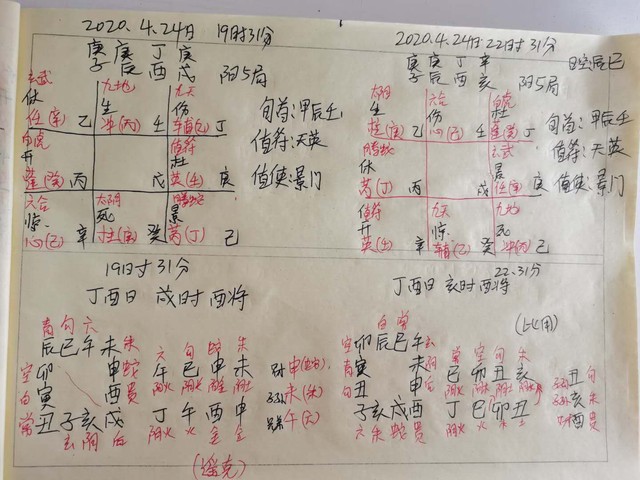 2020.4.24日 19时31分
庚 庚 丁 庚
子 辰 酉 戌 阳5局
玄武 九地 九天
休 生 伤
任(庚) 乙 冲(丙) 壬 辅(乙) 丁
旬首:甲辰壬
白虎 值符
开 杜
蓬(癸) 丙 戊 英(壬) 庚
值符:天英
值使:景门
六合 太阴 螣蛇
惊 死 景
心(己) 辛 柱(庚) 癸 芮(丁) 己
2020.4.24日 22时31分
庚 庚 丁 辛
子 辰 酉 亥 阳5局
日空辰巳
太阴 六合 白虎
生 伤 杜
柱(庚) 乙 心(己) 壬 蓬(癸) 丁
旬首:甲辰壬
螣蛇 玄武
休 景
芮(丁) 丙 戊 任(辛) 庚
值符:天英
值使:景门
值符 九天 九地
开 惊 死
英(壬) 辛 辅(乙) 癸 冲(丙) 己
19时31分
丁酉日 戌时 酉将
青 勾 六
辰 巳 午 未 朱
空 卯 申 蛇
白 寅 酉 贵
常 丑 子 亥 戌
玄 阴 后
六 勾 蛇 朱
午 巳 申 未
丁 午 酉 申
阴火 阳火 金 金
申
未(朱)
午(六)
(遥克)
22.31分
丁酉日 亥时 酉将
白 常
空 卯 辰 巳 午 玄
青 寅 未 阴
勾 丑 申 后
子 亥 戌 酉
六 朱 蛇 贵
常 空 勾 朱
巳 卯 丑 亥
丁 巳 卯 丑
丑 勾
亥 朱
酉 贵